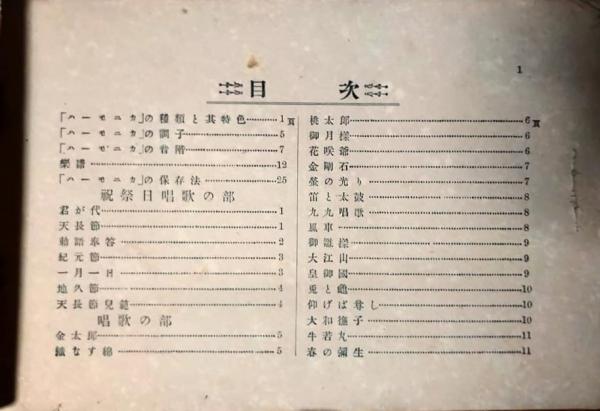 1
目次
「ハーモニカ」の種類と其特色 1頁
「ハーモニカ」の調子 5
「ハーモニカ」の音階 7
樂譜 12
「ハーモニカ」の保存法 25
祝祭日唱歌の部
君が代 1
天長節 1
勅語奉答 2
紀元節 3
一月一日 3
地久節 4
天長節兒範 4
唱歌の部
金太郎 5
織なす錦 5
桃太郎 6頁
御月樣 6
花咲爺 6
金剛石 7
螢の光り 7
笛と太鼓 8
九九唱歌 8
風車 8
御雛樣 9
大江山 9
皇御國 9
兎と龜 10
仰げば尊し 10
大和撫子 10
牛若丸 11
春の彌生 11